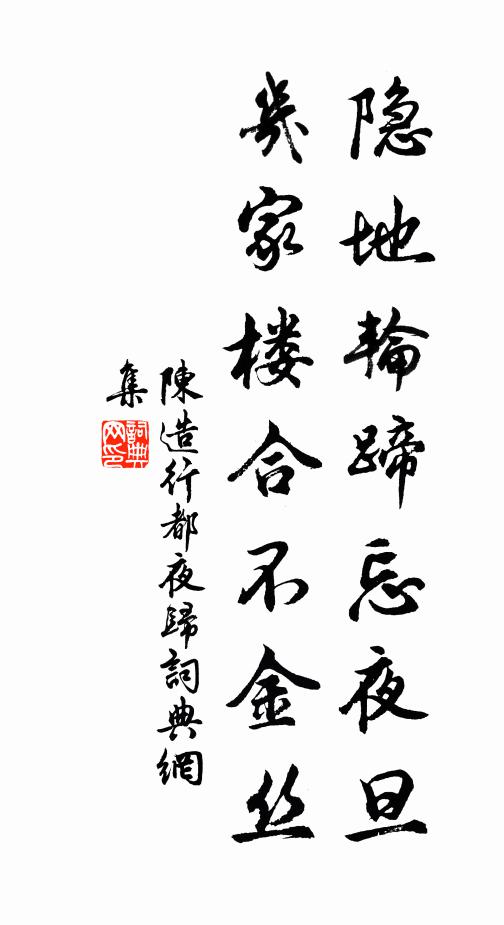 隐地輪蹄忘夜旦
幾家楼合不金丝
陳造行都夜歸詞典網
集
詞典
网印